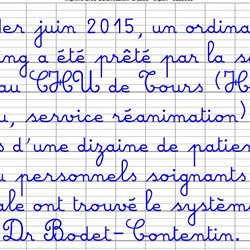 1er juin 2015, un ordina
ing a été prêté par la so
au CHU de Tours (H
u, service réanimation)
s d'une dizaine de patien
u personnels soignants
ale ont trouvé le systèm
Dr Bodet-Contentin.